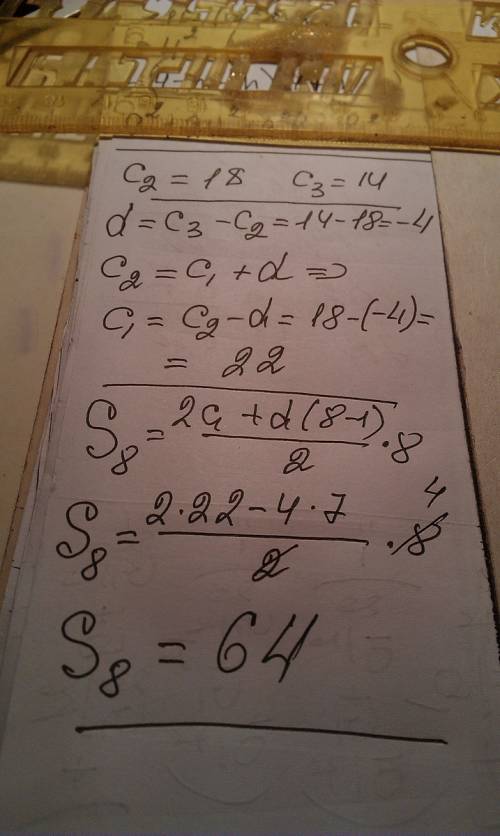 C₂ = 18 C₃ = 14
d = C₃ - C₂ = 14 - 18 = -4
C₂ = C₁ + d ⇒
C₁ = C₂ - d = 18 - (-4) =
= 22
S₈ = (2C₁ + d(8-1))/2 · 8
S₈ = (2·22 - 4·7)/2 · 8 4
S₈ = 64